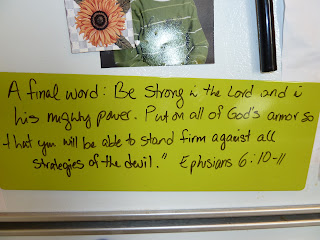 A final word: Be strong in the Lord and in
his mighty power. Put on all of God's armor so
that you will be able to stand firm against all
strategies of the devil." Ephisians 6:10-11